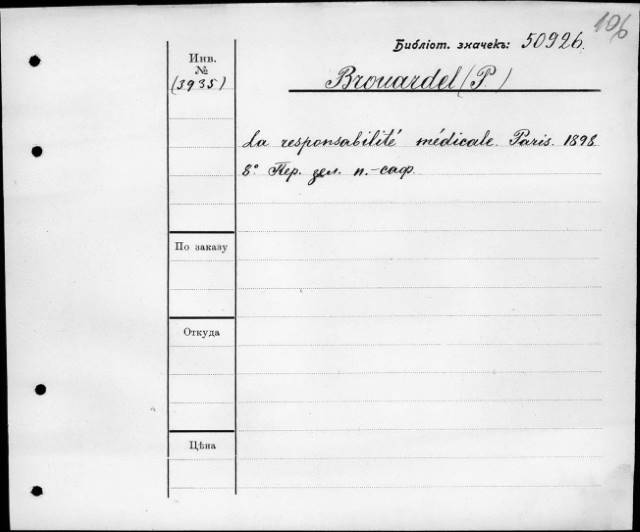 106
Библіот. значекъ: 50926.
Инв.
№
(3935)
Brouardel (P.)
La responsabilité médicale. Paris. 1898.
8° Пер. зел. п.-саф.
По заказу
Откуда
Цѣна